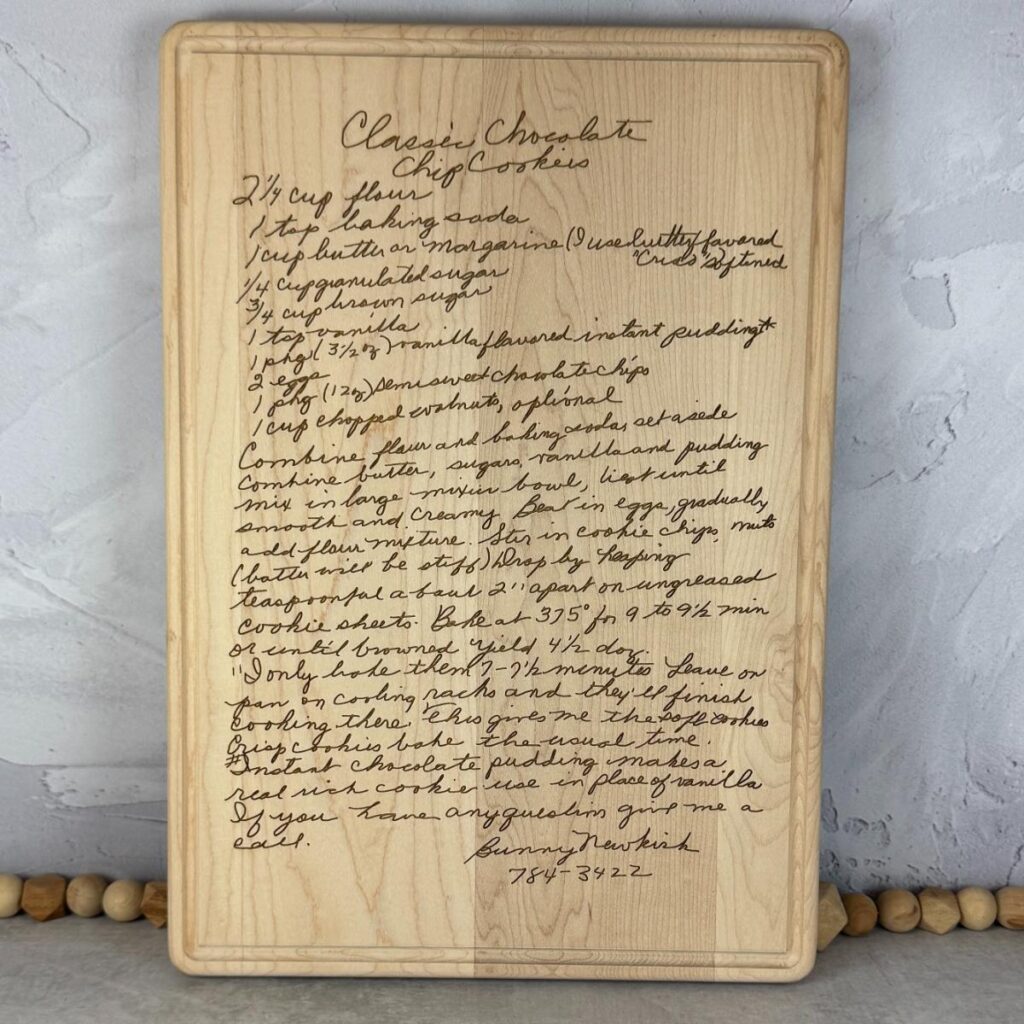 Classic Chocolate
Chip Cookies
2 1/4 cup flour
1 tsp baking soda
1 cup butter or margarine (I use butter flavored
"Crisco" softened
1/4 cup granulated sugar
3/4 cup brown sugar
1 tsp vanilla
1 pkg (3 1/2 oz) vanilla flavored instant pudding*
2 eggs
1 pkg (12 oz) semi sweet chocolate chips
1 cup chopped walnuts, optional
Combine flour and baking soda, set aside
Combine butter, sugars, vanilla and pudding
mix in large mixin bowl, beat until
smooth and creamy. Beat in eggs, gradually
add flour mixture. Stir in cookie chips, nuts
(batter will be stiff) Drop by heaping
teaspoonful about 2" apart on ungreased
cookie sheets. Bake at 375° for 9 to 9 1/2 min
or until browned Yield 4 1/2 doz.
"I only bake them 7-7 1/2 minutes Leave on
pan on cooling racks and they'll finish
cooking there. This gives me the soft cookies
Crisp cookies bake the usual time.
*Instant chocolate pudding makes a
real rich cookie use in place of vanilla
If you have any questions give me a
call.
Bunny Newkirk
784-3422